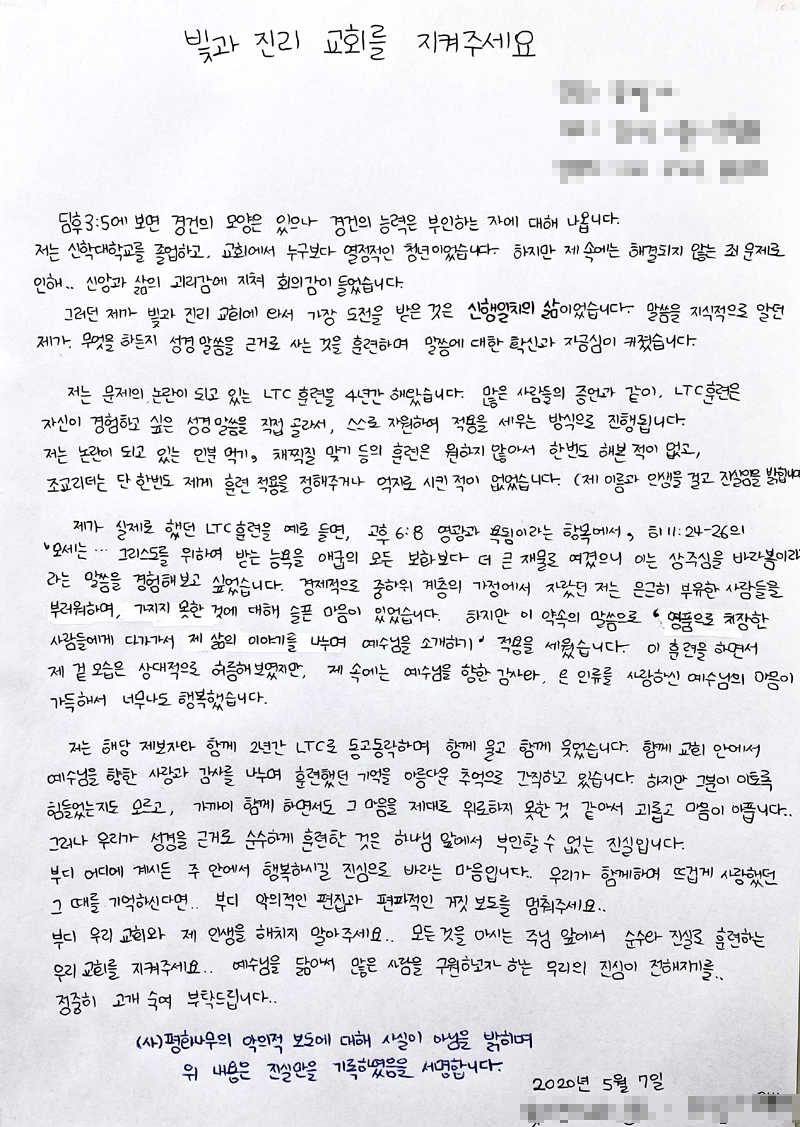 빛과 진리 교회를 지켜주세요
딤후3:5에 보면 경건의 모양은 있으나 경건의 능력은 부인하는 자에 대해 나옵니다.
저는 신학대학교를 졸업하고, 교회에서 누구보다 열정적인 청년이었습니다. 하지만 제 속에는 해결되지 않는 죄 문제로
인해.. 신앙과 삶의 괴리감에 지쳐 회의감이 들었습니다.
그러던 제가 빛과 진리 교회에 와서 가장 도전을 받은 것은 신행일치의 삶이었습니다. 말씀을 지식적으로 알던
제가. 무엇을 하든지 성경 말씀을 근거로 사는 것을 훈련하며 말씀에 대한 확신과 자긍심이 커졌습니다.
저는 문제의 논란이 되고 있는 LTC 훈련을 4년간 해왔습니다. 많은 사람들의 증언과 같이, LTC훈련은
자신이 경험하고 싶은 성경 말씀을 직접 골라서, 스스로 자원하여 적용을 세우는 방식으로 진행됩니다.
저는 논란이 되고 있는 인분 먹기, 채찍질 맞기 등의 훈련은 원하지 않아서 한번도 해본 적이 없고,
조교리더는 단 한번도 제게 훈련 적용을 정해주거나 억지로 시킨 적이 없었습니다. (제 이름과 인생을 걸고 진실임을 밝힙니다
제가 실제로 했던 LTC훈련을 예로 들면, 고후 6:8 영광과 욕됨이라는 항목에서, 히11:24-26의
"모세는 … 그리스도를 위하여 받는 능욕을 애굽의 모든 보화보다 더 큰 재물로 여겼으니 이는 상주심을 바라봄이라
라는 말씀을 경험해보고 싶었습니다. 경제적으로 중하위 계층의 가정에서 자랐던 저는 은근히 부유한 사람들을
부러워하며, 가지지 못한 것에 대해 슬픈 마음이 있었습니다. 하지만 이 약속의 말씀으로 '명품으로 치장한
사람들에게 다가가서 제 삶의 이야기를 나누며 예수님을 소개하기' 적용을 세웠습니다. 이 훈련을 하면서
제 겉 모습은 상대적으로 허름해보였지만, 제 속에는 예수님을 향한 감사와, 온 인류를 사랑하신 예수님의 마음이
가득해서 너무나도 행복했습니다.
저는 해당 제보자와 함께 2년간 LTC로 동고동락하며 함께 울고 함께 웃었습니다. 함께 교회 안에서
예수님을 향한 사랑과 감사를 나누며 훈련했던 기억을 아름다운 추억으로 간직하고 있습니다. 하지만 그분이 이토록
힘들었는지도 모르고, 가까이 함께 하면서도 그 마음을 제대로 위로하지 못한 것 같아서 괴롭고 마음이 아픕니다..
그러나 우리가 성경을 근거로 순수하게 훈련한 것은 하나님 앞에서 부인할 수 없는 진실입니다.
부디 어디에 계시든 주 안에서 행복하시길 진심으로 바라는 마음입니다. 우리가 함께하며 뜨겁게 사랑했던
그 때를 기억하신다면.. 부디 악의적인 편집과 편파적인 거짓 보도를 멈춰주세요..
부디 우리 교회와 제 인생을 해치지 말아주세요.. 모든 것을 아시는 주님 앞에서 순수와 진실로 훈련하는
우리 교회를 지켜주세요.. 예수님을 닮아서 많은 사람을 구원하고자 하는 우리의 진심이 전해지기를..
정중히 고개 숙여 부탁드립니다..
(사)평화나무의 악의적 보도에 대해 사실이 아님을 밝히며
위 내용은 진실만을 기록하였음을 서명합니다.
2020년 5월 7일